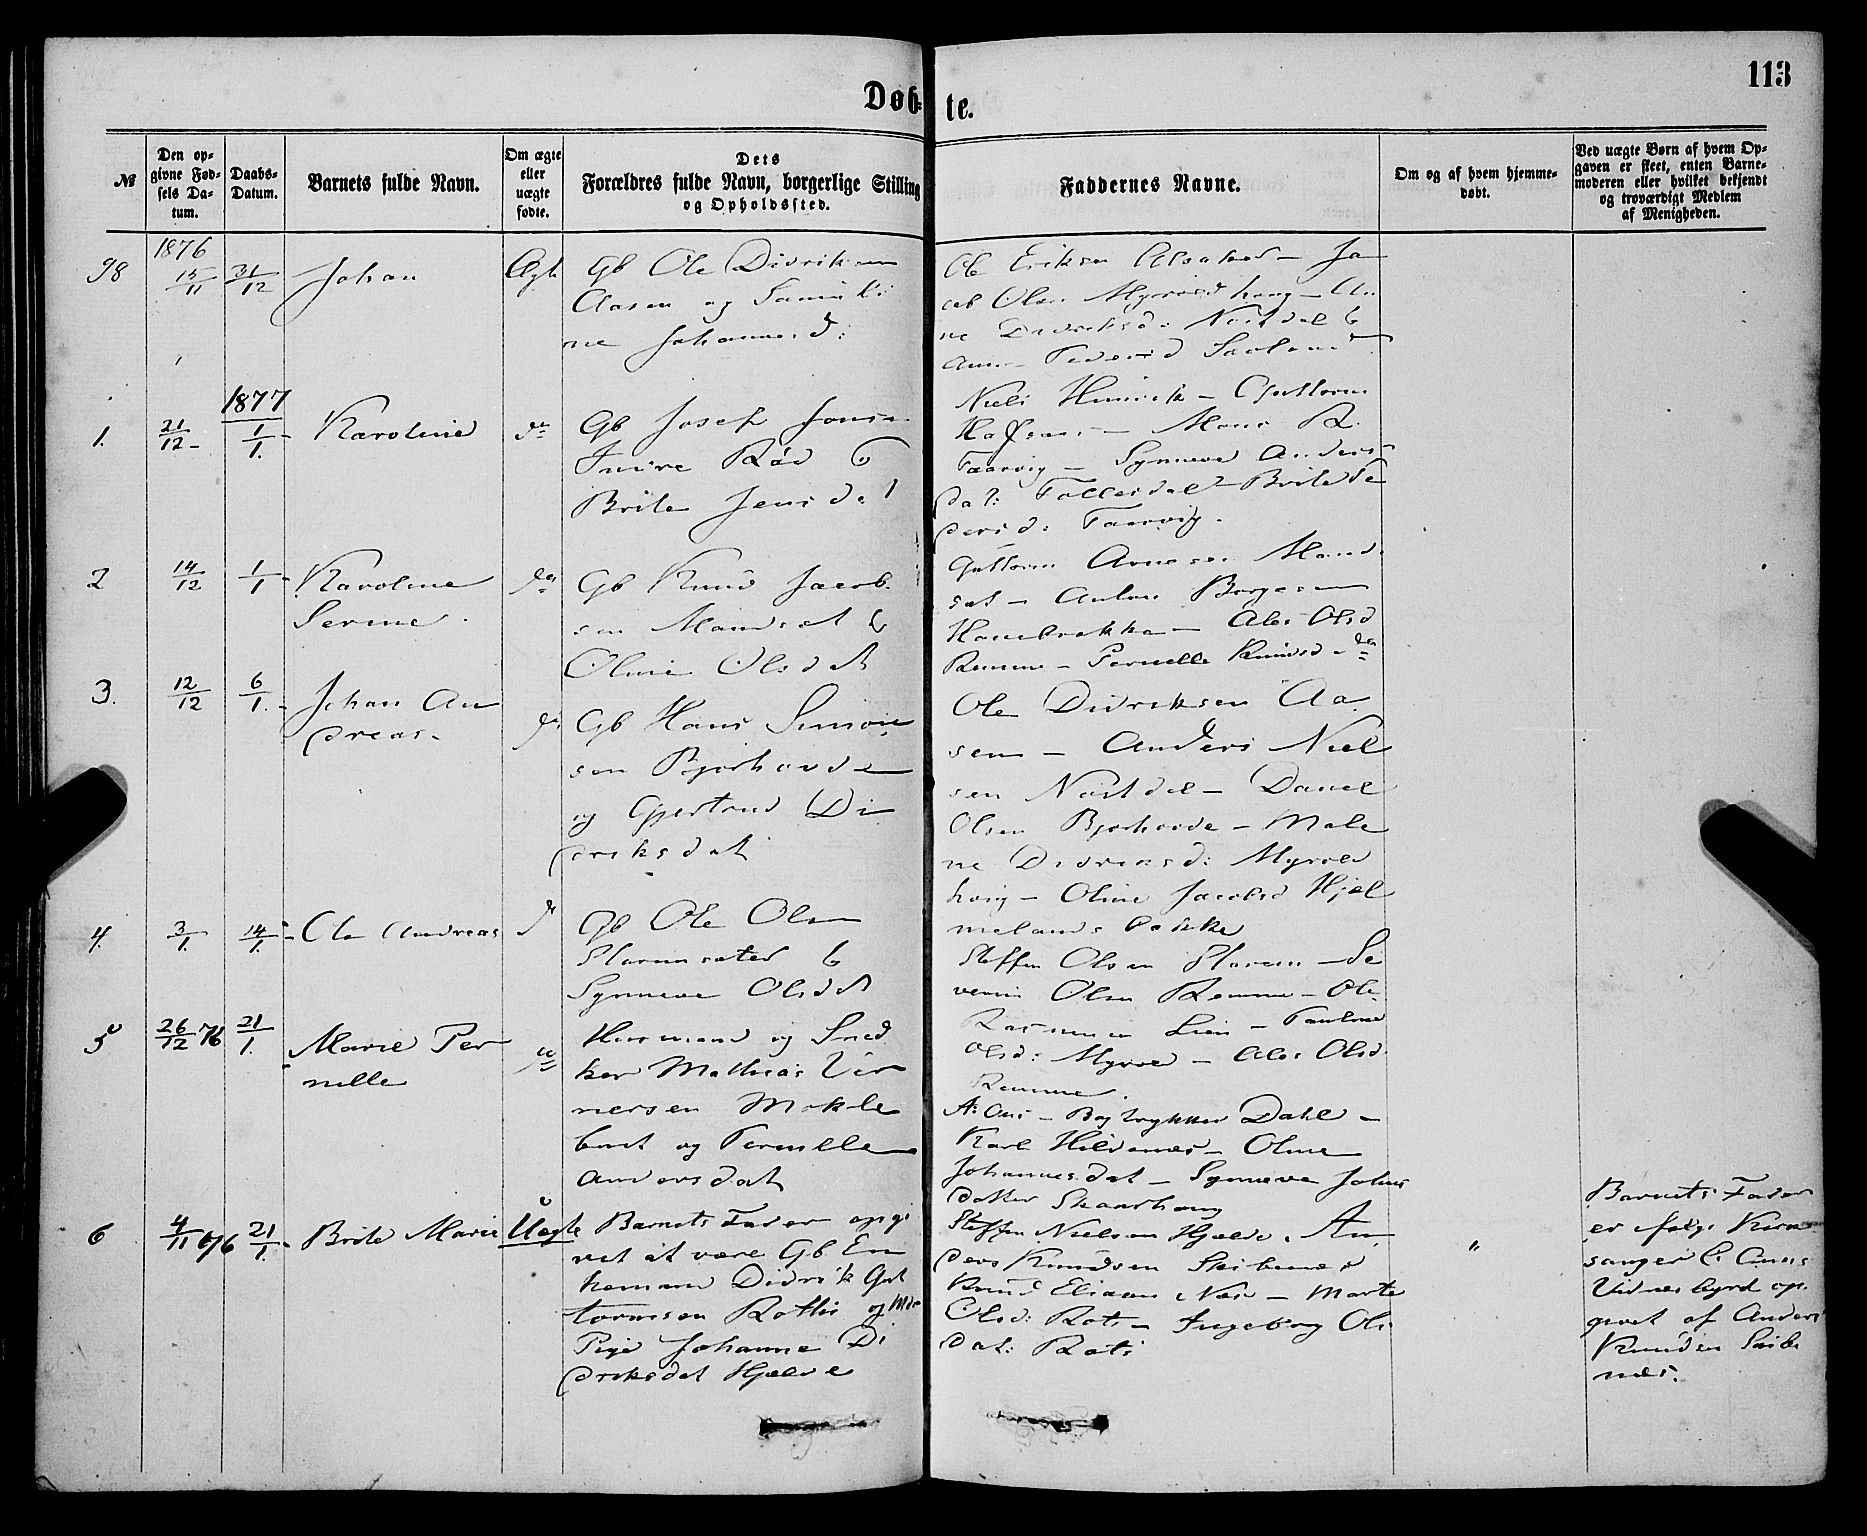 113
Døb-
te.
№
Den op-
givne Fød-
sels Da-
tum.
Daabs-
Datum.
Barnets fulde Navn.
Om ægte
eller
uægte
fødte.
Dets
Forældres fulde Navn, borgerlige Stilling
og Opholdssted.
Faddernes Navne.
Om og af hvem hjemme-
døbt.
Ved uægte Børn af hvem Op-
gaven er skeet, enten Barne-
moderen eller hvilket bekjendt
og troværdigt Medlem
af Menigheden.
98
1876
15/11
31/12
Johan
Ægte
Gb Ole Didriksen
Aasen og
ne Johannesd:
Ole Eriksen - Ja
cob Olsen Myrvold haug - An
ne Didriksd:
1.
21/12 -
1877
1/1.
Karoline
do
Gb Josef Jons
Indre Rød &
Brite Jensdat
Niels Henrik - Guttorm
- Mons R.
Taarvig - Synneve Anders
dat: Tollesdal - Brite Pe
dersd: Taarvig.
2
14/12
1/1 -
Karoline
Serine.
do
Gb Knud Jacob
sen Mandsat &
Oline Olsdat
Guttorm Arnesen Mand
sat - Anton Borgesen
- Ales Olsd
Remme - Pernelle Knudsd do
3.
12/12
6/1. -
Johan An
dreas -
do
Gb Hans Simon
sen Bjørhovde
og Gjertrud Di
driksdat
Ole Didriksen Aa
sen - Anders Niel
sen Nøstdal - Daniel
Olsen Bjørhovde - Male
ne Didriksd: Myrvold
haug - Oline Jacobsd Hjel
melands bakke
4.
3/1.
14/1. -
Ole Andreas
do
Gb Ole Olsen
&
Synneve Olsdat
Steffen Olsen - Se
verin Olsen Remme - Ole
Rasmussen Lien - Pauline
Olsd: Myrvold - Ales Olsd.
Remme.
5
26/12 76
21/1. -
Marie Per
nelle
do
Huusmand og Sned
ker Mathias Ver
nersen Mokle
bust og Pernille
Andersdat
A: - Bogtrykker Dahl -
Karl Hildenes - Oline
Johannesdat - Synneve Johns
datter Skaarhaug
6
4/11 76
21/1. -
Brite Marie
Uægte
Barnets Fader opgi
vet at være Gb En
kemand Didrik Gut
tormsen
Pige Johanne Di
driksdat Hjelde
Steffen Nielsen Hjelde. An
ders Knudsen Skibenes
Knud Eliasen Næs - Marte
Olsd: - Ingeborg Ols
dat:
"
Barnets Fader
er ifølge Kirke
sanger
Vidnesbyrd op
givet af Anders
Knudsen Skibe
næs.